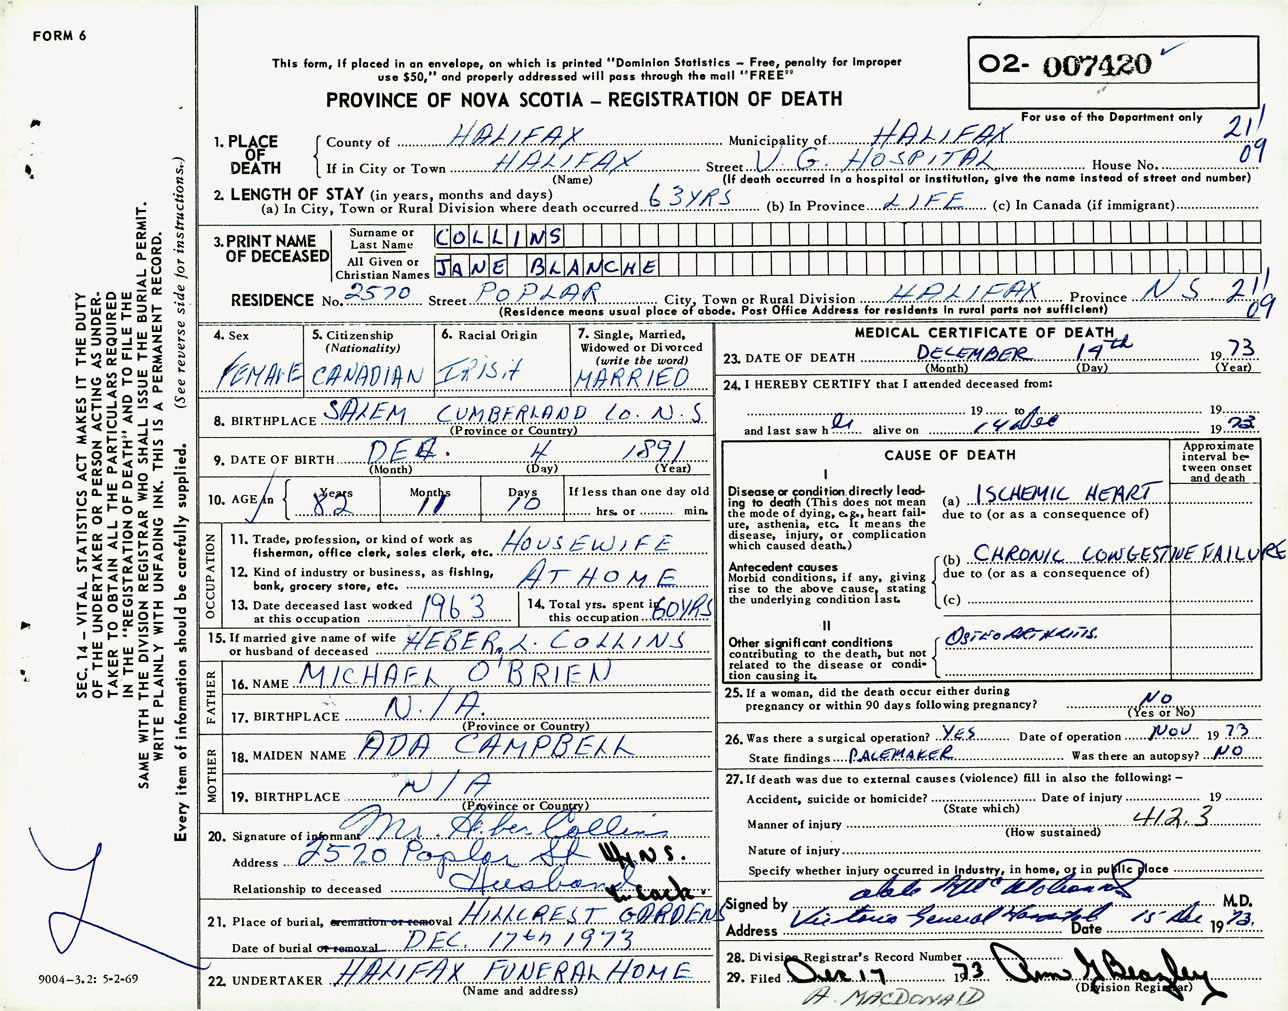 FORM 6
This form, if placed in an envelope, on which is printed "Dominion Statistics – Free, penalty for improper
use $50," and properly addressed will pass through the mail "FREE"
PROVINCE OF NOVA SCOTIA – REGISTRATION OF DEATH
O2- 007420
For use of the Department only
211
09
1. PLACE OF DEATH
County of HALIFAX Municipality of HALIFAX
If in City or Town HALIFAX Street V. G. HOSPITAL House No.
(Name) (If death occurred in a hospital or institution, give the name instead of street and number)
2. LENGTH OF STAY (in years, months and days)
(a) In City, Town or Rural Division where death occurred 63YRS (b) In Province LIFE (c) In Canada (if immigrant)
3. PRINT NAME OF DECEASED
Surname or Last Name COLLINS
All Given or Christian Names JANE BLANCHE
RESIDENCE No. 2570 Street POPLAR City, Town or Rural Division HALIFAX Province N S. 211
09
(Residence means usual place of abode. Post Office Address for residents in rural parts not sufficient)
4. Sex FEMALE
5. Citizenship (Nationality) CANADIAN
6. Racial Origin IRISH
7. Single, Married, Widowed or Divorced (write the word) MARRIED
8. BIRTHPLACE SALEM CUMBERLAND CO. N.S
(Province or Country)
9. DATE OF BIRTH DEC. 4 1891
(Month) (Day) (Year)
10. AGE in Years 82 Months 11 Days 10 If less than one day old
hrs. or min.
OCCUPATION
11. Trade, profession, or kind of work as HOUSEWIFE
fisherman, office clerk, sales clerk, etc.
12. Kind of industry or business, as fishing, AT HOME
bank, grocery store, etc.
13. Date deceased last worked at this occupation 1963
14. Total yrs. spent in this occupation 60YRS
15. If married give name of wife or husband of deceased HEBER L. COLLINS
FATHER
16. NAME MICHAEL O'BRIEN
17. BIRTHPLACE N./A.
(Province or Country)
MOTHER
18. MAIDEN NAME ADA CAMPBELL
19. BIRTHPLACE N/A
(Province or Country)
20. Signature of informant Mr. Heber Collins
Address 2570 Poplar St N.S.
Relationship to deceased Husband
21. Place of burial, cremation or removal HILLCREST GARDENS
Date of burial or removal DEC. 17th 1973
22. UNDERTAKER HALIFAX FUNERAL HOME
(Name and address)
MEDICAL CERTIFICATE OF DEATH
23. DATE OF DEATH DECEMBER 14th 1973
(Month) (Day) (Year)
24. I HEREBY CERTIFY that I attended deceased from:
19 to 19
and last saw her alive on 14 Dec 1973
CAUSE OF DEATH
Approximate interval between onset and death
I
Disease or condition directly leading to death (This does not mean the mode of dying, e.g., heart failure, asthenia, etc. It means the disease, injury, or complication which caused death.)
(a) ISCHEMIC HEART
due to (or as a consequence of)
Antecedent causes
Morbid conditions, if any, giving rise to the above cause, stating the underlying condition last.
(b) CHRONIC CONGESTIVE FAILURE
due to (or as a consequence of)
(c)
II
Other significant conditions contributing to the death, but not related to the disease or condition causing it.
OSTEOARTHRITIS.
25. If a woman, did the death occur either during
pregnancy or within 90 days following pregnancy? NO
(Yes or No)
26. Was there a surgical operation? YES Date of operation NOV 1973
State findings PACEMAKER Was there an autopsy? NO
27. If death was due to external causes (violence) fill in also the following: –
Accident, suicide or homicide? Date of injury 19
(State which)
Manner of injury 412.3
(How sustained)
Nature of injury
Specify whether injury occurred in industry, in home, or in public place
Signed by M.D.
Address Victoria General Hospital Date 15 Dec 1973.
28. Division Registrar's Record Number
29. Filed Dec 17 1973 Ann G Beazley
(Division Registrar)
A. MACDONALD
SEC. 14 – VITAL STATISTICS ACT MAKES IT THE DUTY
OF THE UNDERTAKER OR PERSON ACTING AS UNDER-
TAKER TO OBTAIN ALL THE PARTICULARS REQUIRED
IN THE "REGISTRATION OF DEATH" AND TO FILE THE
SAME WITH THE DIVISION REGISTRAR WHO SHALL ISSUE THE BURIAL PERMIT.
WRITE PLAINLY WITH UNFADING INK. THIS IS A PERMANENT RECORD.
Every item of information should be carefully supplied. (See reverse side for instructions.)
9004-3.2: 5-2-69